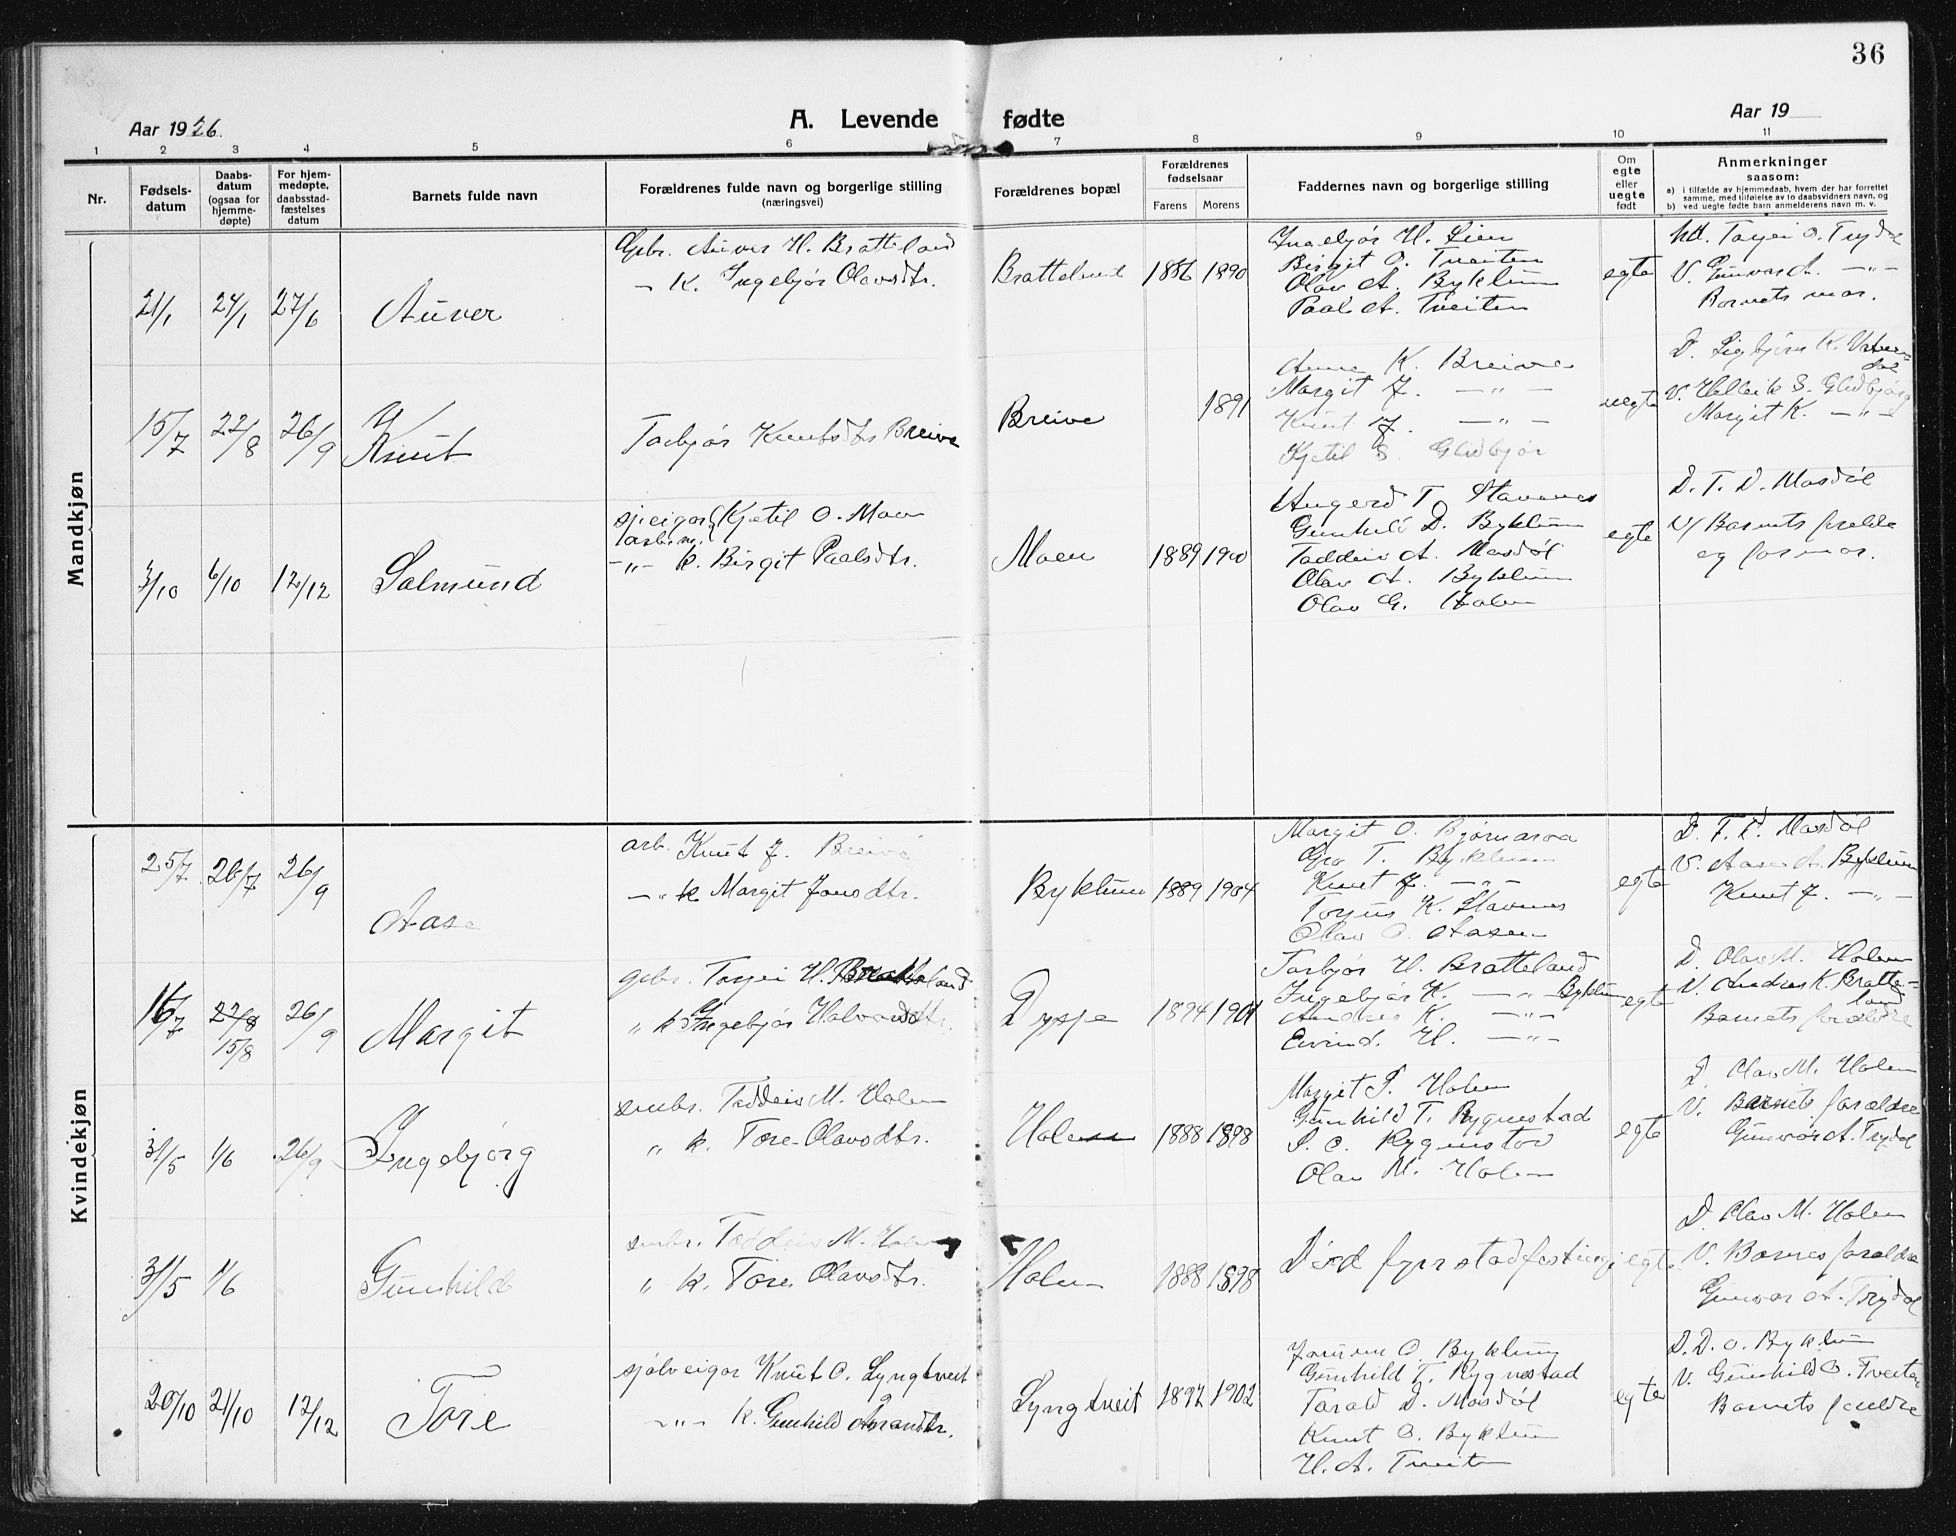 36
Aar 1926.
A. Levende fødte
Aar 19
1 2 3 4 5 6 7 8 9 10 11
Nr.
Fødsels-
datum
Daabs-
datum
(ogsaa for
hjemme-
døpte)
For hjem-
medøpte,
daabsstad-
fæstelses
datum
Barnets fulde navn
Forældrenes fulde navn og borgerlige stilling
(næringsvei)
Forældrenes bopæl
Forældrenes
fødselsaar
Farens Morens
Faddernes navn og borgerlige stilling
Om
egte
eller
uegte
født
Anmerkninger
saasom:
a) i tilfælde av hjemmedaab, hvem der har forrettet
samme, med tilføielse av to daabsvidners navn, og
b) ved uegte fødte barn anmelderens navn m. v.
Mandkjøn
21/1 24/1 27/6
Auver
Gbr. Auver H. Bratteland
— K. Ingebjør Olavsdtr.
Bratteland
1886 1890
Ingebjør H. Lien
Birgit O. Tveiten
Olav A. Byklum
Paal A. Tveiten
egte
Tarjei O. Trydal
V. Gunvor A. —"—
Barnets mor.
15/7 22/8 26/9
Knut
Torbjør Knutsdtr Breive
Breive
1891
Anne K. Breive
Margit J. —"—
Knut J. —"—
Kjetil S. Glidbjør
uegte
D. Sigbjørn K. Vatten-
dal
V. Helleik S. Glidbjørg
Margit K. —"—
3/10 6/10 12/12
Salmund
sjeigar Kjetil O. Moen
—"— k. Birgit Paalsdtr.
Moen
1889 1900
Angerd T. Stavenes
Gunhild D. Byklum
Taddeiv A. Mosdøl
Olav A. Byklum
Olav G. Holen
egte
D. T. D. Mosdøl
V/ Barnets foreldre
og formor.
Kvindekjøn
25/7 26/7 26/9
Aase
arb. Knut J. Breive
—"— k Margit Jonsdtr.
Byklum
1889 1904
Margit O. Bjørnaraa
Gro T. Byklum
Knut J. —"—
Torjus K. Stavenes
Olav O. Aasen
egte
D. T. D. Mosdøl
V. Aase A. Byklum
Knut J. —"—
16/7 22/8 26/9
15/8
Margit
gbr. Torjei H. Bratteland
" k Ingebjør Halvardsdtr.
Dysje
1894 1901
Torbjør H. Bratteland
Ingebjør K. —"— Byklum
Andres K. —"—
Eivind H. —"—
egte
D. Olav M. Holen
V. Andres K. Bratte-
land
Barnets foreldre
31/5 1/6 26/9
Ingebjørg
smbr. Taddeiv M. Holen
" k. Tore Olavsdtr.
Holen
1888 1898
Margit S. Holen
Gunhild T. Rygnestad
S. O. Rygnestad
Olav M. Holen
egte
D. Olav M. Holen
V. Barnets foreldre
Gunvor A. Trydal
31/5 1/6
Gunhild
smbr. Taddeiv M. Holen
" k. Tore Olavsdtr.
Holen
1888 1898
Død fyrr stadfesting
egte
D. Olav M. Holen
V. Barnes foreldre
Gunvor A. Trydal
20/10 21/10 12/12
Tore
sjølveigar Knut O. Lyngtveit
—"— k. Gunhild Aanundsdtr.
Lyngtveit
1897 1902
Jorunn O. Byklum
Gunhild T. Rygnestad
Tarald D. Mosdøl
Knut O. Byklum
H. A. Tveiten
egte
D. D. O. Byklum
V. Gunhild O. Tveiten
Barnets foreldre